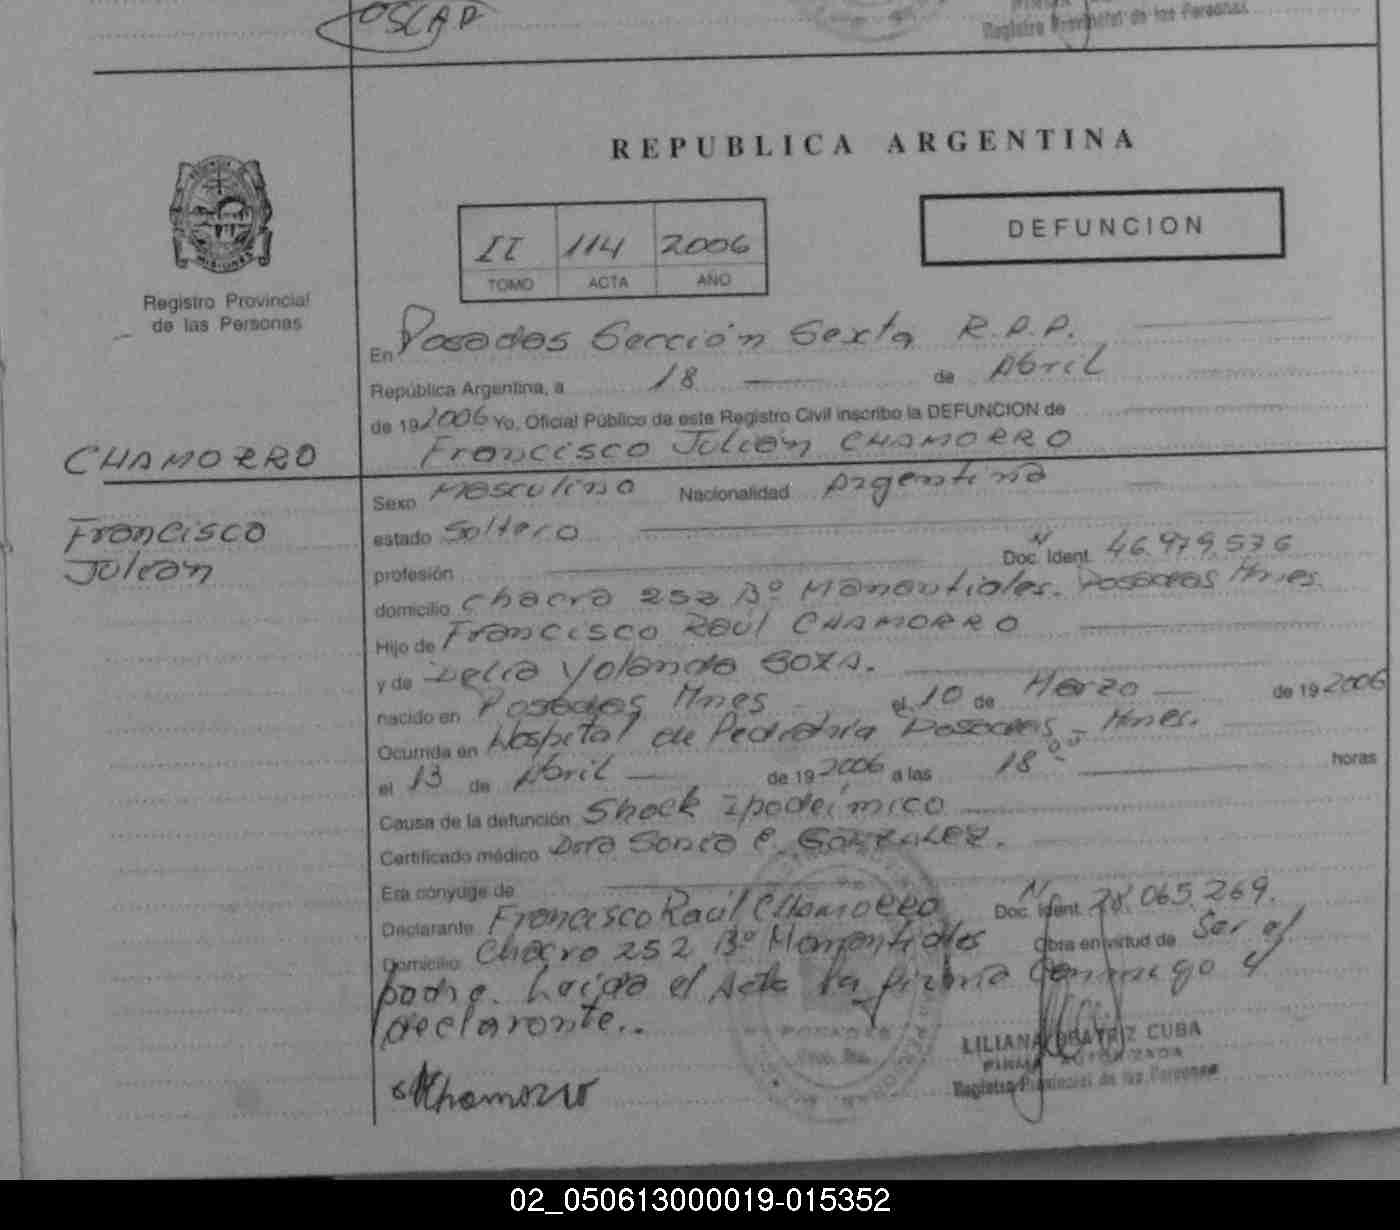 OSCAR
Registro Provincial de las Personas
REPUBLICA ARGENTINA
MISIONES
Registro Provincial
de las Personas
II 114 2006
TOMO ACTA AÑO
DEFUNCION
En Posadas Sección Sexta R.P.P.
República Argentina, a 18 de Abril
de 19 2006 Yo, Oficial Público de este Registro Civil inscribo la DEFUNCION de
CHAMORRO Francisco Julián CHAMORRO
Francisco
Julián
Sexo Masculino Nacionalidad Argentina
estado Soltero
profesión Doc. Ident. N 46.979.576
domicilio Chacra 252 Bº Manantiales. Posadas Mnes.
Hijo de Francisco Raúl CHAMORRO
y de Delia Yolanda BOXA.
nacido en Posadas Mnes el 10 de Marzo de 19 2006
Ocurrida en Hospital de Pediatría Posadas - Mnes.
el 13 de Abril de 19 2006 a las 18 horas
Causa de la defunción Shock Ipodeímico
Certificado médico Dra Sonia C. GONZALEZ.
Era cónyuge de
Declarante Francisco Raúl CHAMORRO Doc. Ident. N 28.065.269.
Domicilio Chacra 252 Bº Manantiales Obra en virtud de Ser el
padre. Leída el Acta la firma conmigo el
declarante..
POSADAS
LILIANA BEATRIZ CUBA
FIRMA AUTORIZADA
Registro Provincial de las Personas
Chamorro
02_050613000019-015352